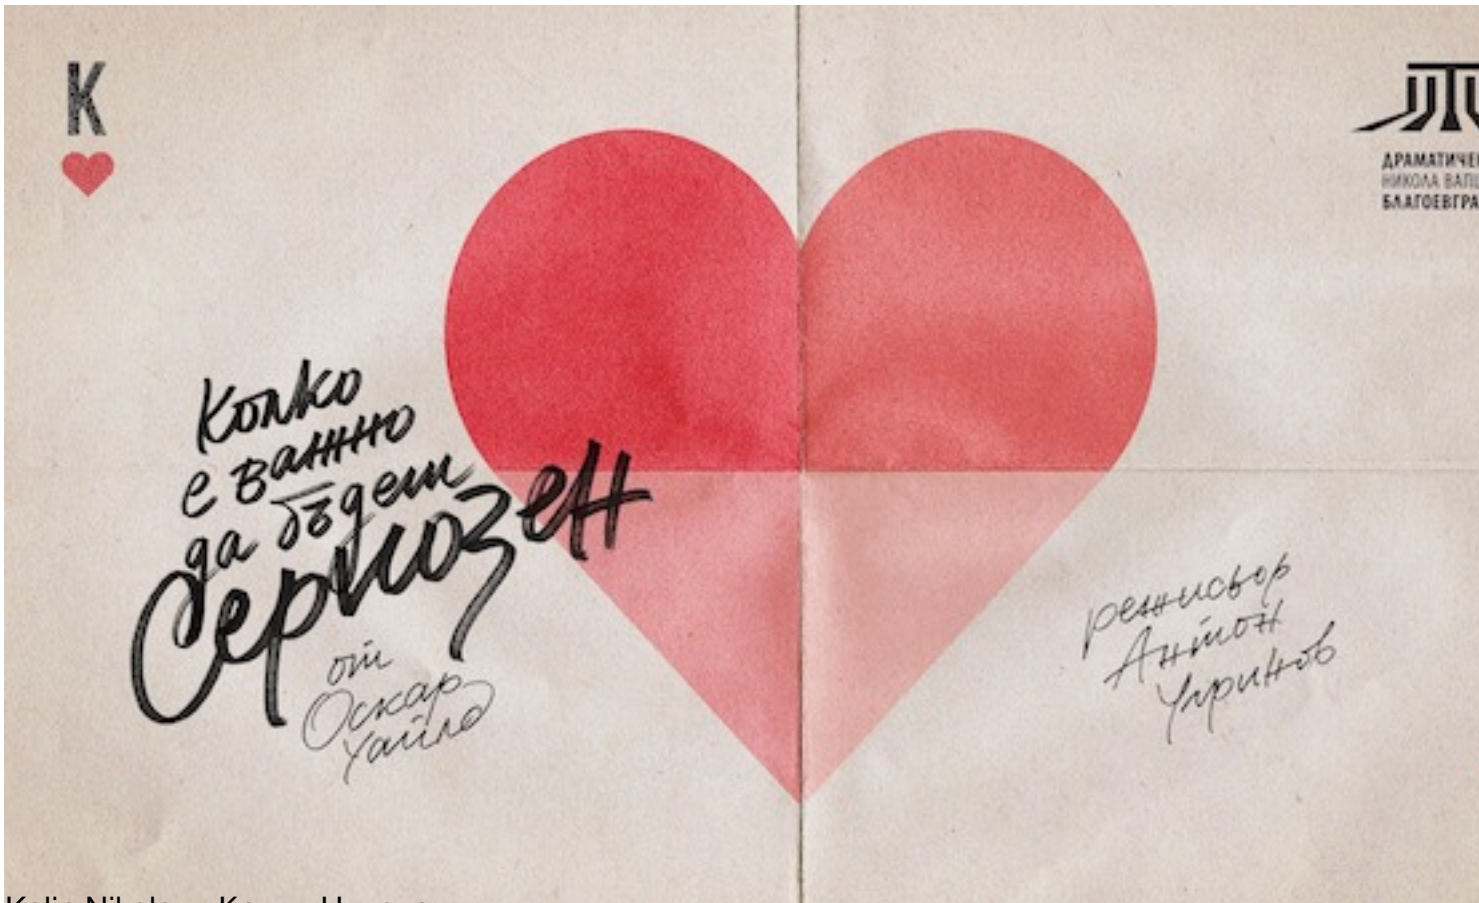 K
ДРАМАТИЧЕ
НИКОЛА ВАПЦ
БЛАГОЕВГРА
Колко
е важно
да бъдеш
Сериозен
от
Оскар
Уайлд
режисьор
Антон
Угринов